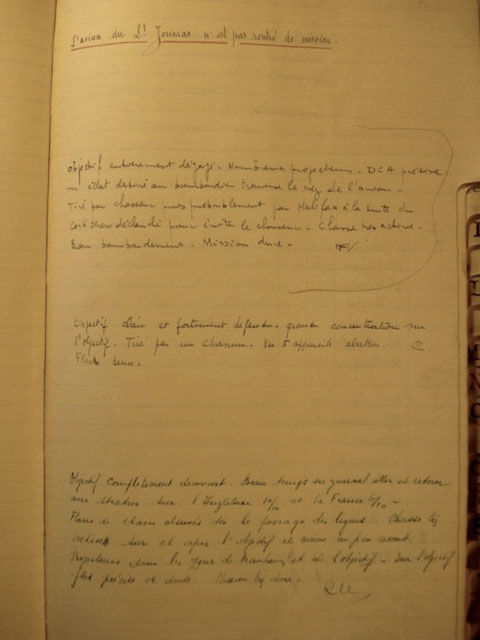 L'avion du Lt Jounias n'est pas rentré de mission.
Objectif entièrement dégagé. Nombreux projecteurs. DCA précise
un éclat destiné au bombardier traverse le nez de l'avion -
Tiré par chasseur puis probablement par Halifax à la suite du
corkscrew déclanché pour éviter le chasseur. Chasse très active.
Bon bombardement. Mission dure.
Objectif clair et fortement défendu. grande concentration sur
l'objectif. Tiré par un chasseur. Vu 5 appareils abattus.
Flak dense.
Objectif complètement découvert. Beau temps en général aller et retour
avec stratus sur l'Angleterre 10/10 et la France
de chasse observés dès le passage des lignes. Chasse très
active sur et après l'objectif et même un peu avant.
Projecteurs dans les zones de et de l'objectif - Sur l'objectif
flak précise et dense. Mission très dure.